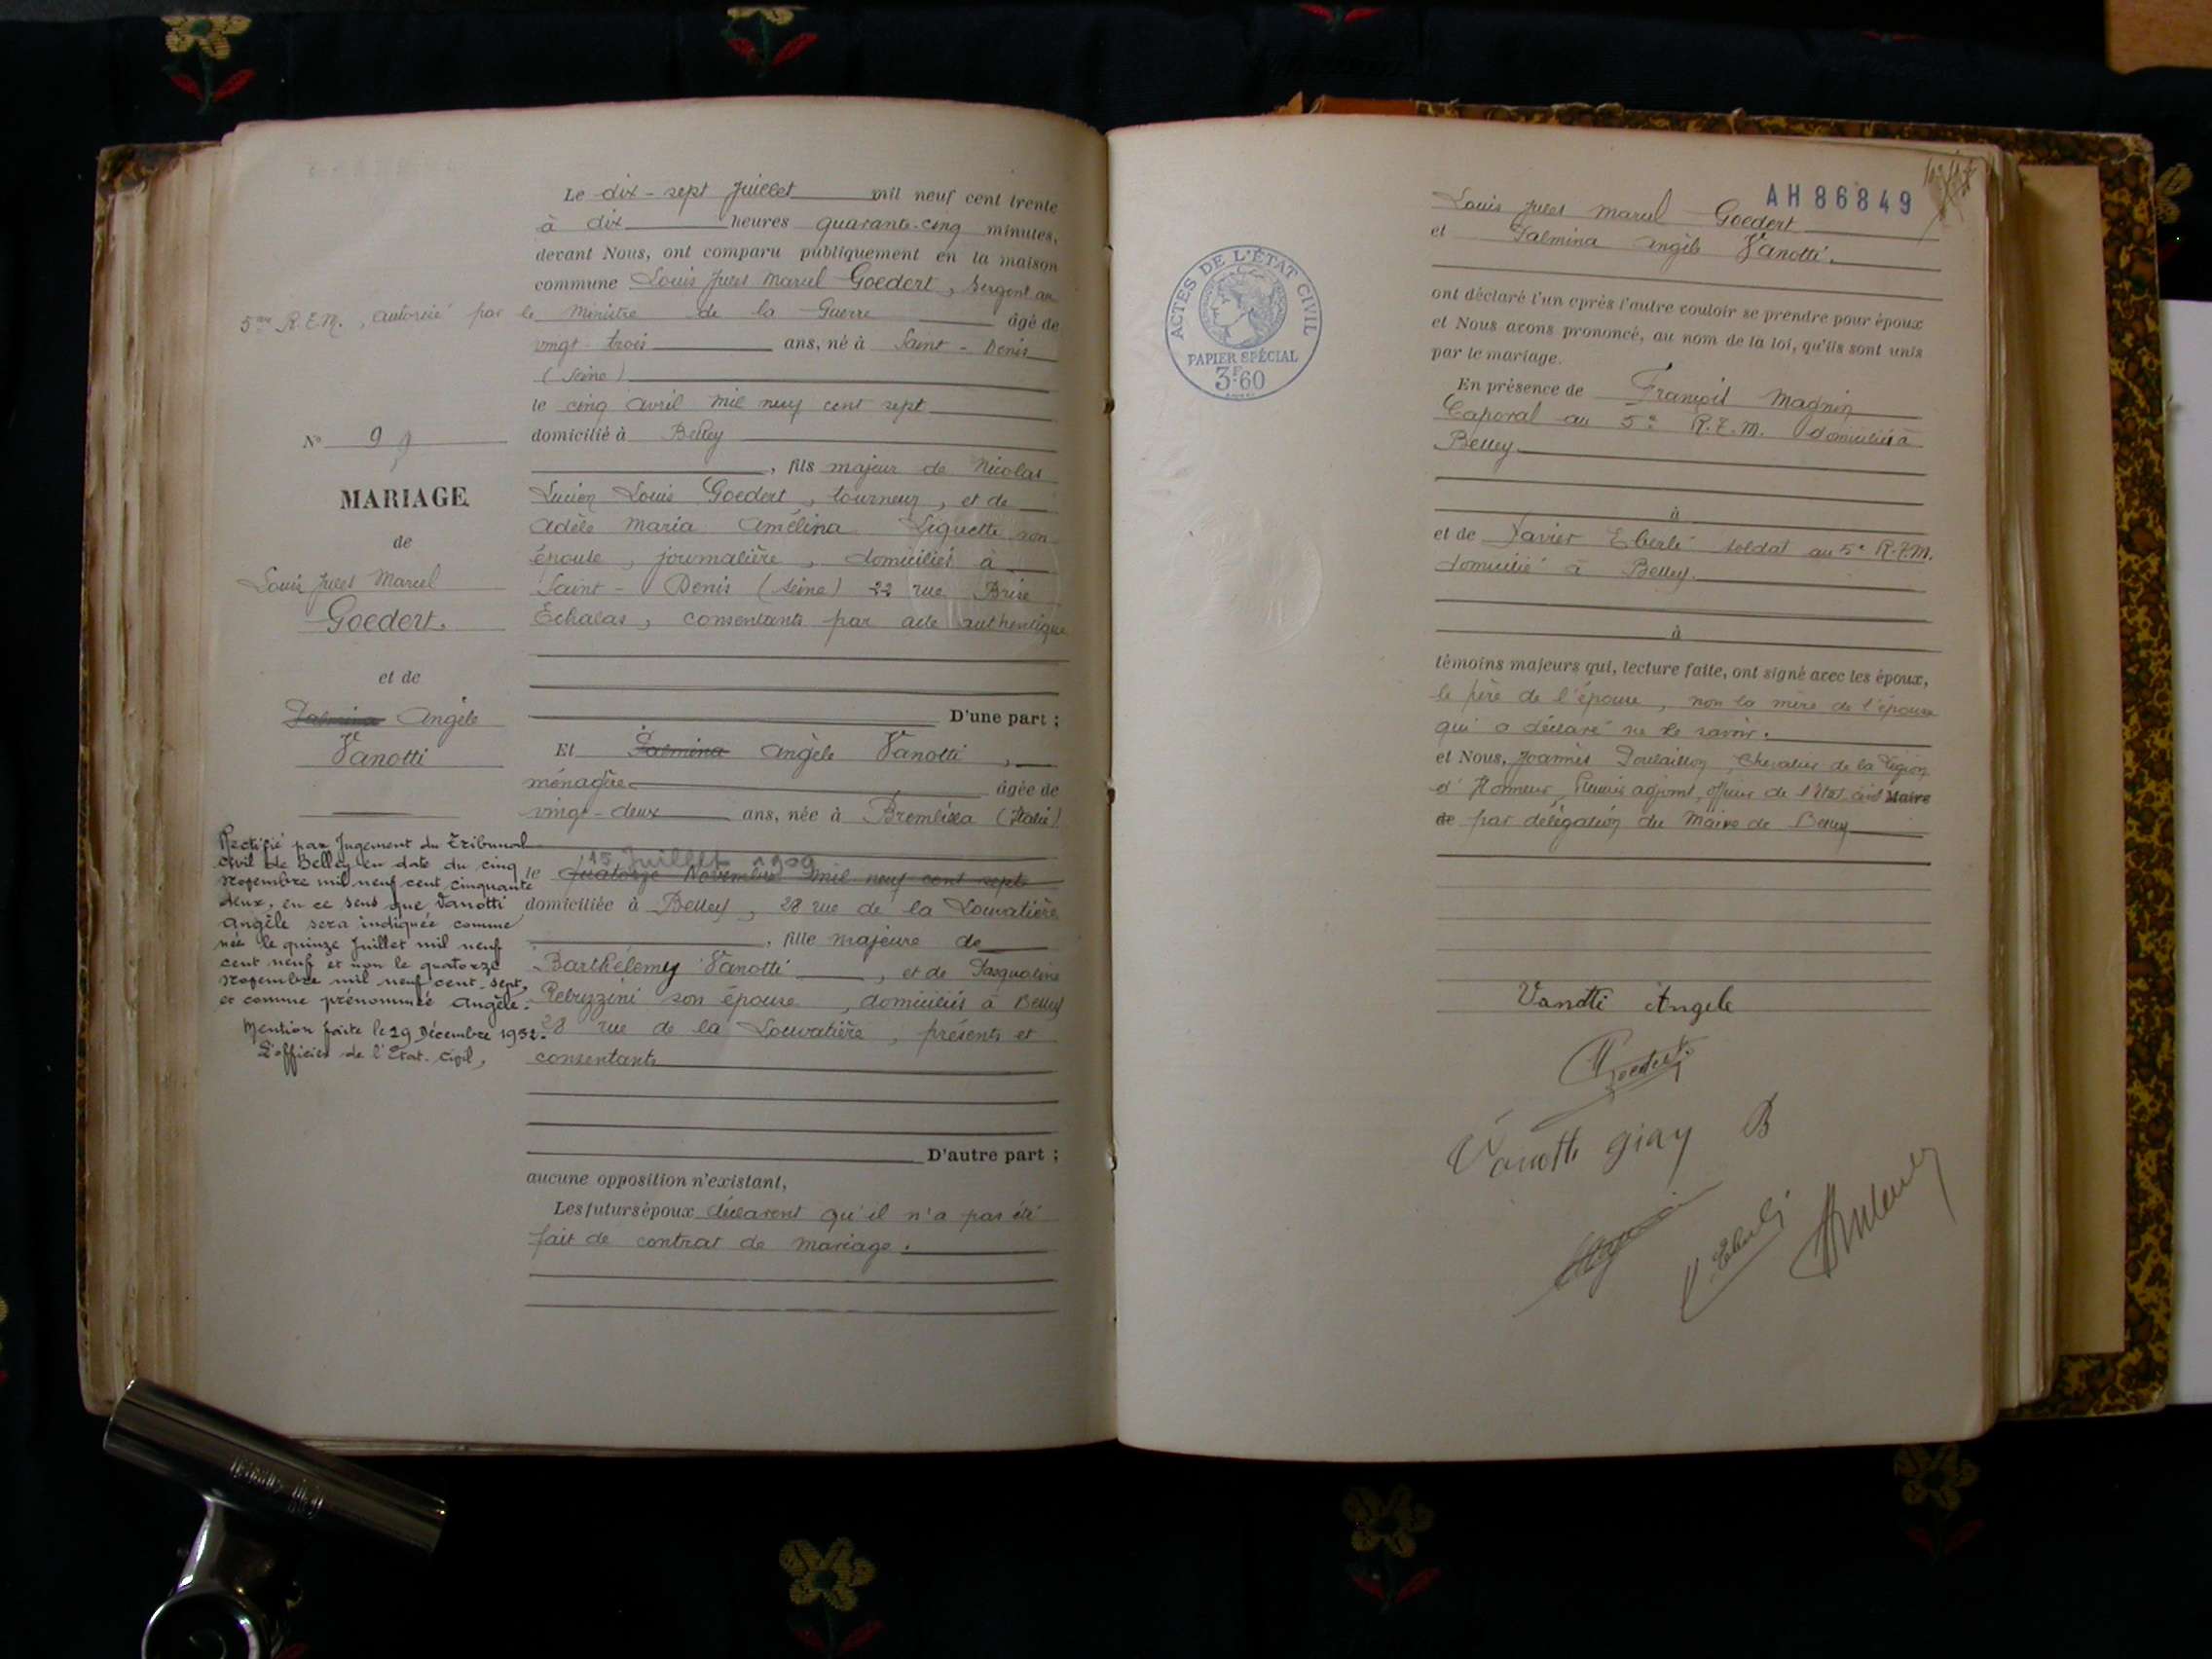 Le dix-sept Juillet mil neuf cent trente
à dix heures quarante-cinq minutes,
devant Nous, ont comparu publiquement en la maison
commune Louis Jules Marcel Goedert, Sergent au
autorisé par le Ministre de la Guerre âgé de
vingt-trois ans, né à Saint-Denis
(Seine)
le cinq avril mil neuf cent sept
domicilié à Belley
, fils majeur de Nicolas
Lucien Louis Goedert, tourneur, et de
Adèle Maria Amélina Liquette son
épouse, journalière, domiciliés à
Saint-Denis (Seine) 22 rue Brise
Echalas, consentants par acte authentique
D'une part ;
Et Palmina Angèle Vanotti,
ménagère âgée de
vingt-deux ans, née à (Italie)
15 Juillet 1909
le quatorze Novembre mil neuf cent sept
domiciliée à Belley, 28 rue de la Louvatière
, fille majeure de
Barthélemy Vanotti, et de Pasqualine
son épouse, domiciliés à Belley
28 rue de la Louvatière, présents et
consentants
D'autre part ;
aucune opposition n'existant,
Les futurs époux déclarent qu'il n'a pas été
fait de contrat de mariage.
N° 9
MARIAGE
de
Louis Jules Marcel
Goedert.
et de
Palmina Angèle
Vanotti
Rectifié par Jugement du Tribunal
Civil de Belley en date du cinq
Novembre mil neuf cent cinquante
deux, en ce sens que Vanotti
Angèle sera indiquée comme
née le quinze Juillet mil neuf
cent neuf et non le quatorze
Novembre mil neuf cent sept,
et comme prénommée Angèle.
Mention faite le 29 Décembre 1952.
L'officier de l'Etat-Civil,
AH86849
Louis Jules Marcel Goedert
et Palmina Angèle Vanotti.
ACTES DE L'ÉTAT CIVIL
PAPIER SPÉCIAL
3F60
ont déclaré l'un après l'autre vouloir se prendre pour époux
et Nous avons prononcé, au nom de la loi, qu'ils sont unis
par le mariage.
En présence de François Magnin
Caporal au 5e domicilié à
Belley
à
et de Xavier Eberlé soldat au 5e
domicilié à Belley.
à
témoins majeurs qui, lecture faite, ont signé avec les époux,
le père de l'épouse, non la mère de l'épouse
qui a déclaré ne le savoir.
et Nous, Joannès Chevalier de la Légion
d'Honneur, adjoint, officier de l'état civil Maire
de par délégation du Maire de Belley
Vanotti Angele
Goedert